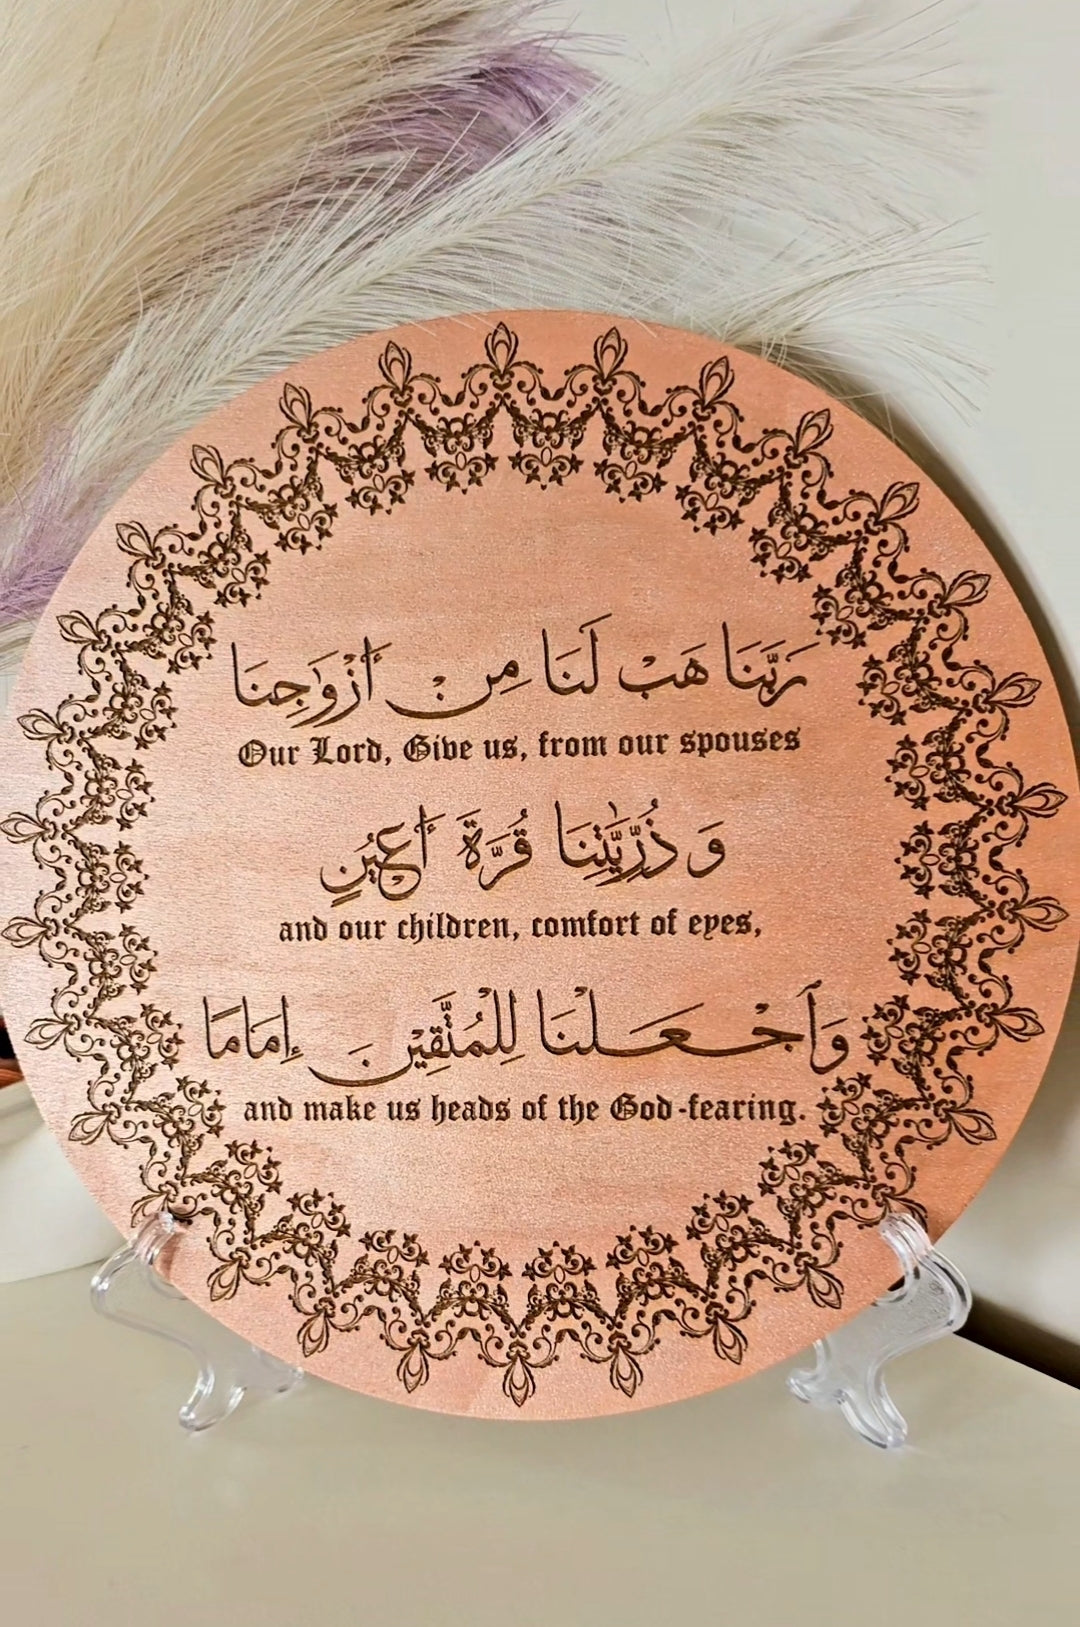 رَبَّنَا هَبْ لَنَا مِنْ أَزْوَٰجِنَا
Our Lord, Give us, from our spouses
وَذُرِّيَّٰتِنَا قُرَّةَ أَعْيُنٍ
and our children, comfort of eyes,
وَٱجْعَلْنَا لِلْمُتَّقِينَ إِمَامَا
and make us heads of the God-fearing.